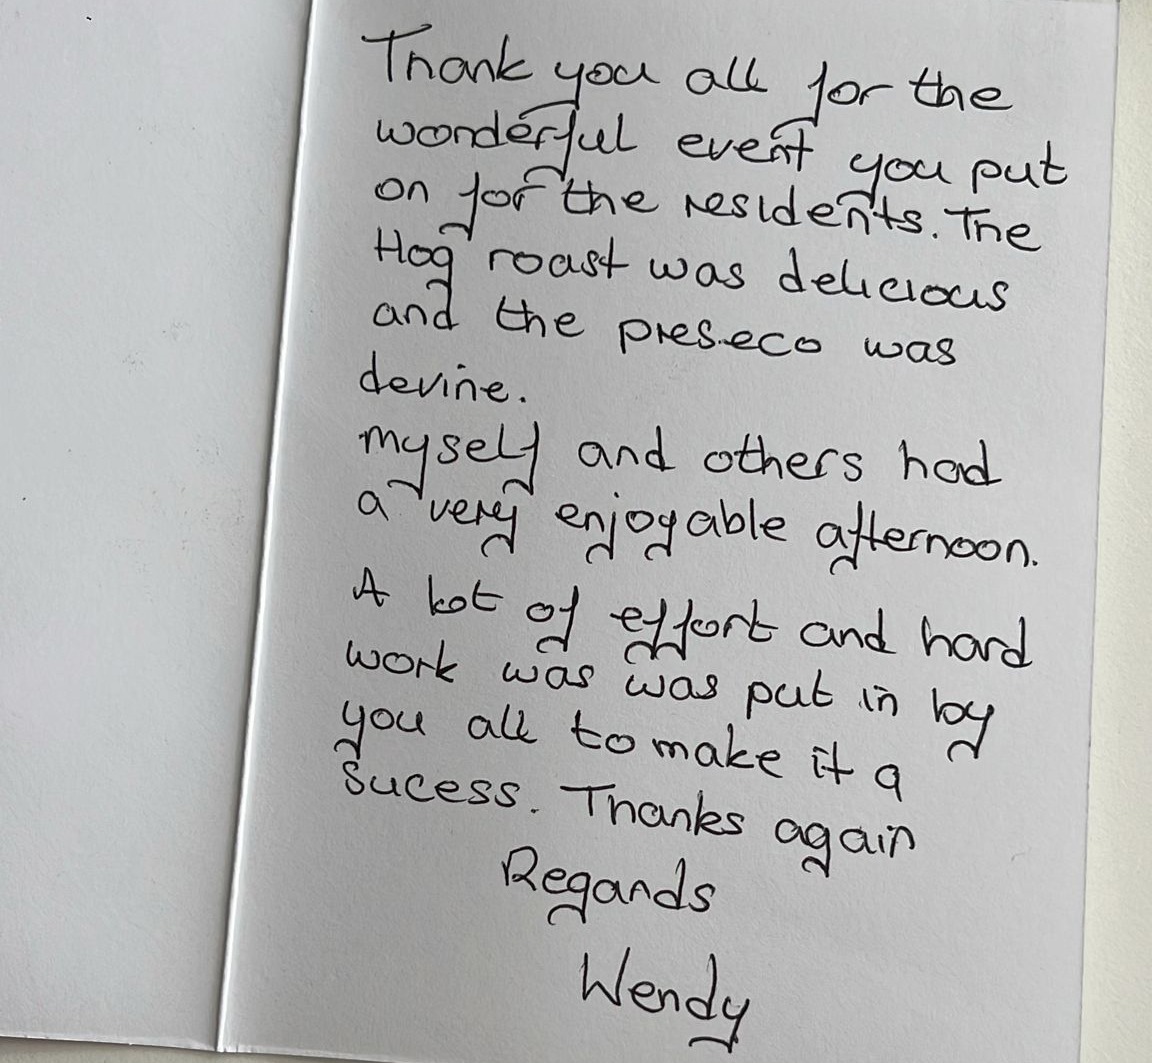 Thank you all for the
wonderful event you put
on for the residents. The
Hog roast was delicious
and the preseco was
devine.
myself and others had
a very enjoyable afternoon.
A lot of effort and hard
work was was put in by
you all to make it a
sucess. Thanks again
Regards
Wendy